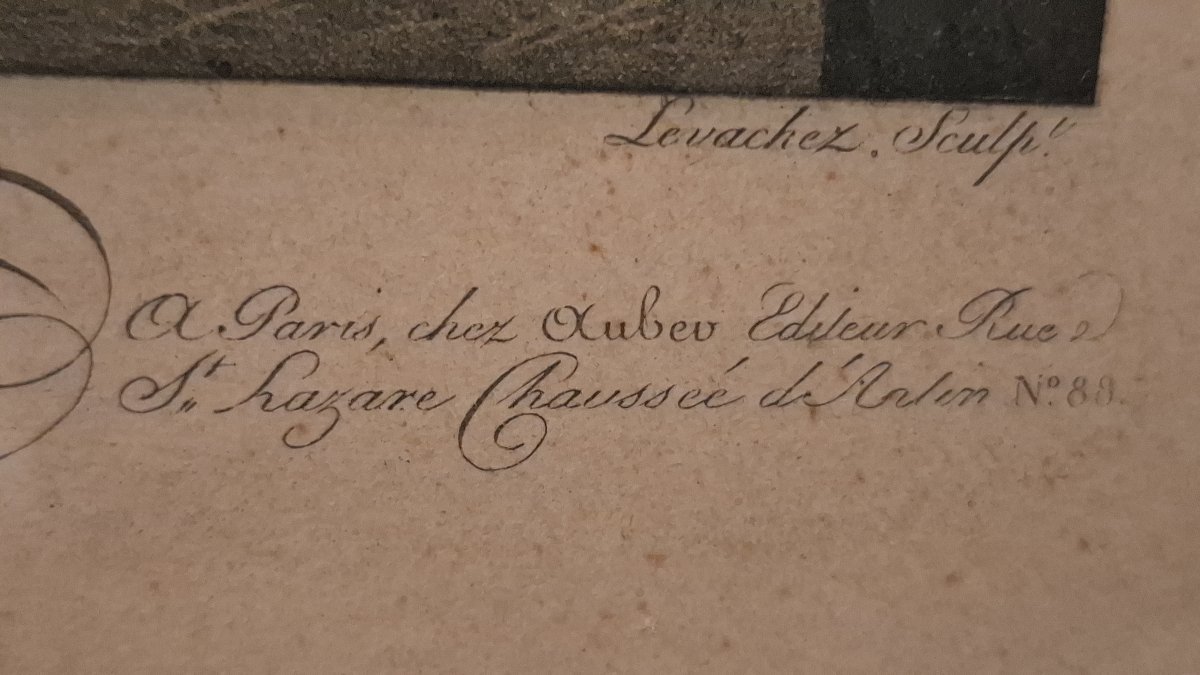 Levachez. Sculp.t
A Paris, chez Auber Editeur Rue
St. Lazare Chausseé d'Antin No. 88.